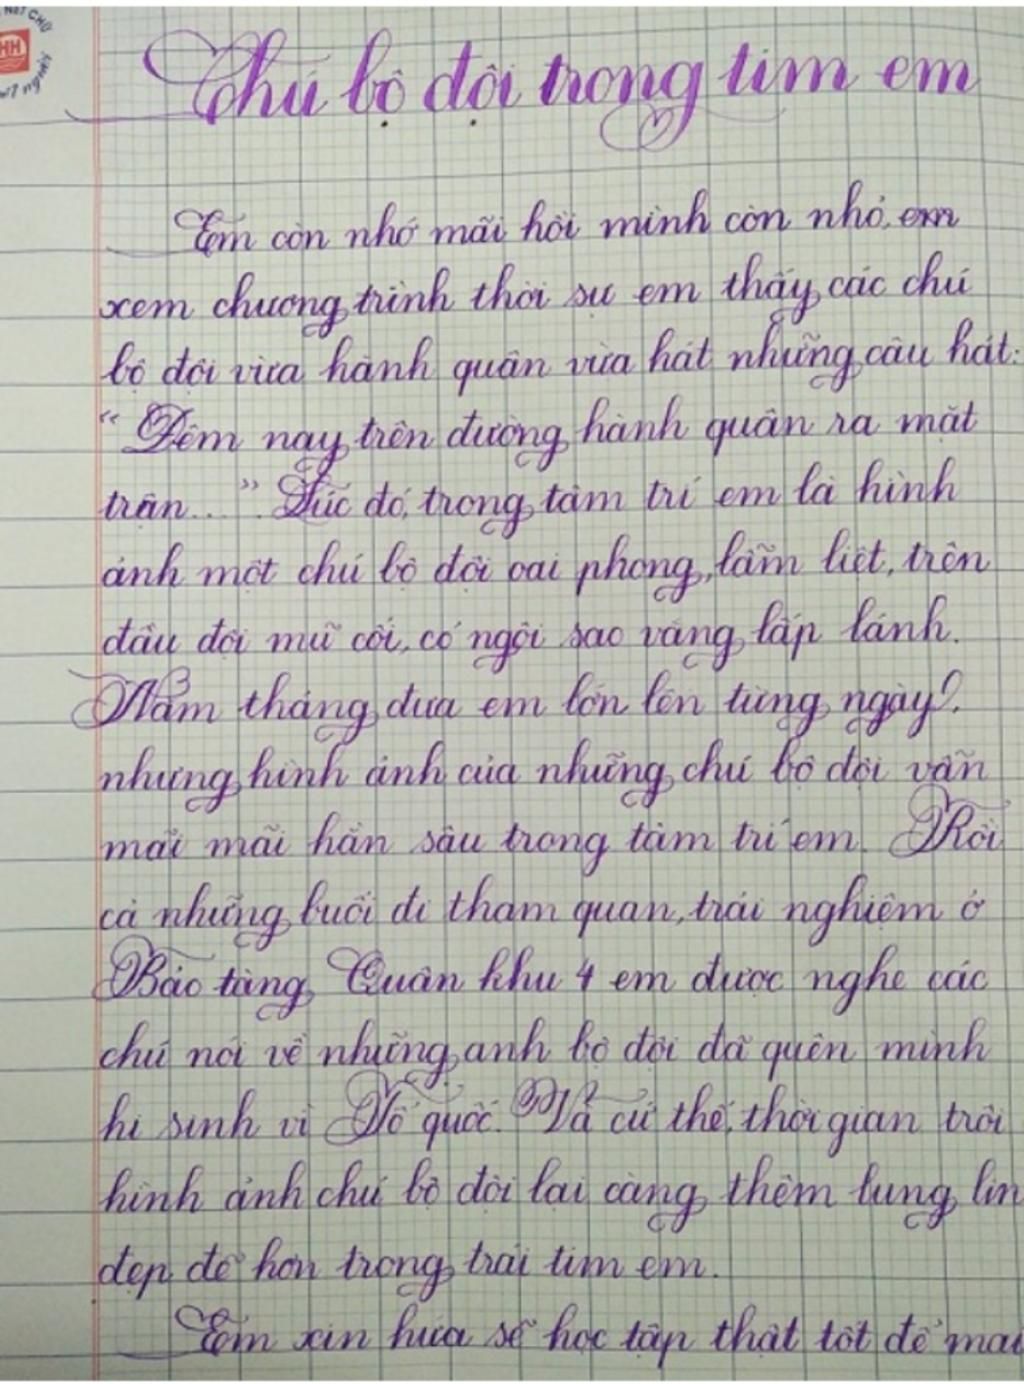 NÉT CHỮ
HH
Chú bộ đội trong tim em
Em còn nhớ mãi hồi mình còn nhỏ, em
xem chương trình thời sự em thấy các chú
bộ đội vừa hành quân vừa hát những câu hát:
“Đêm nay trên đường hành quân ra mặt
trận...”. Lúc đó, trong tâm trí em là hình
ảnh một chú bộ đội oai phong, lẫm liệt, trên
đầu đội mũ cối, có ngôi sao vàng lấp lánh.
Năm tháng đưa em lớn lên từng ngày,
nhưng hình ảnh của những chú bộ đội vẫn
mãi mãi hằn sâu trong tâm trí em. Rồi
cả những buổi đi tham quan, trải nghiệm ở
Bảo tàng Quân khu 4 em được nghe các
chú nói về những anh bộ đội đã quên mình
hi sinh vì Tổ quốc. Và cứ thế, thời gian trôi
hình ảnh chú bộ đội lại càng thêm lung lin
đẹp đẽ hơn trong trái tim em.
Em xin hứa sẽ học tập thật tốt để mai